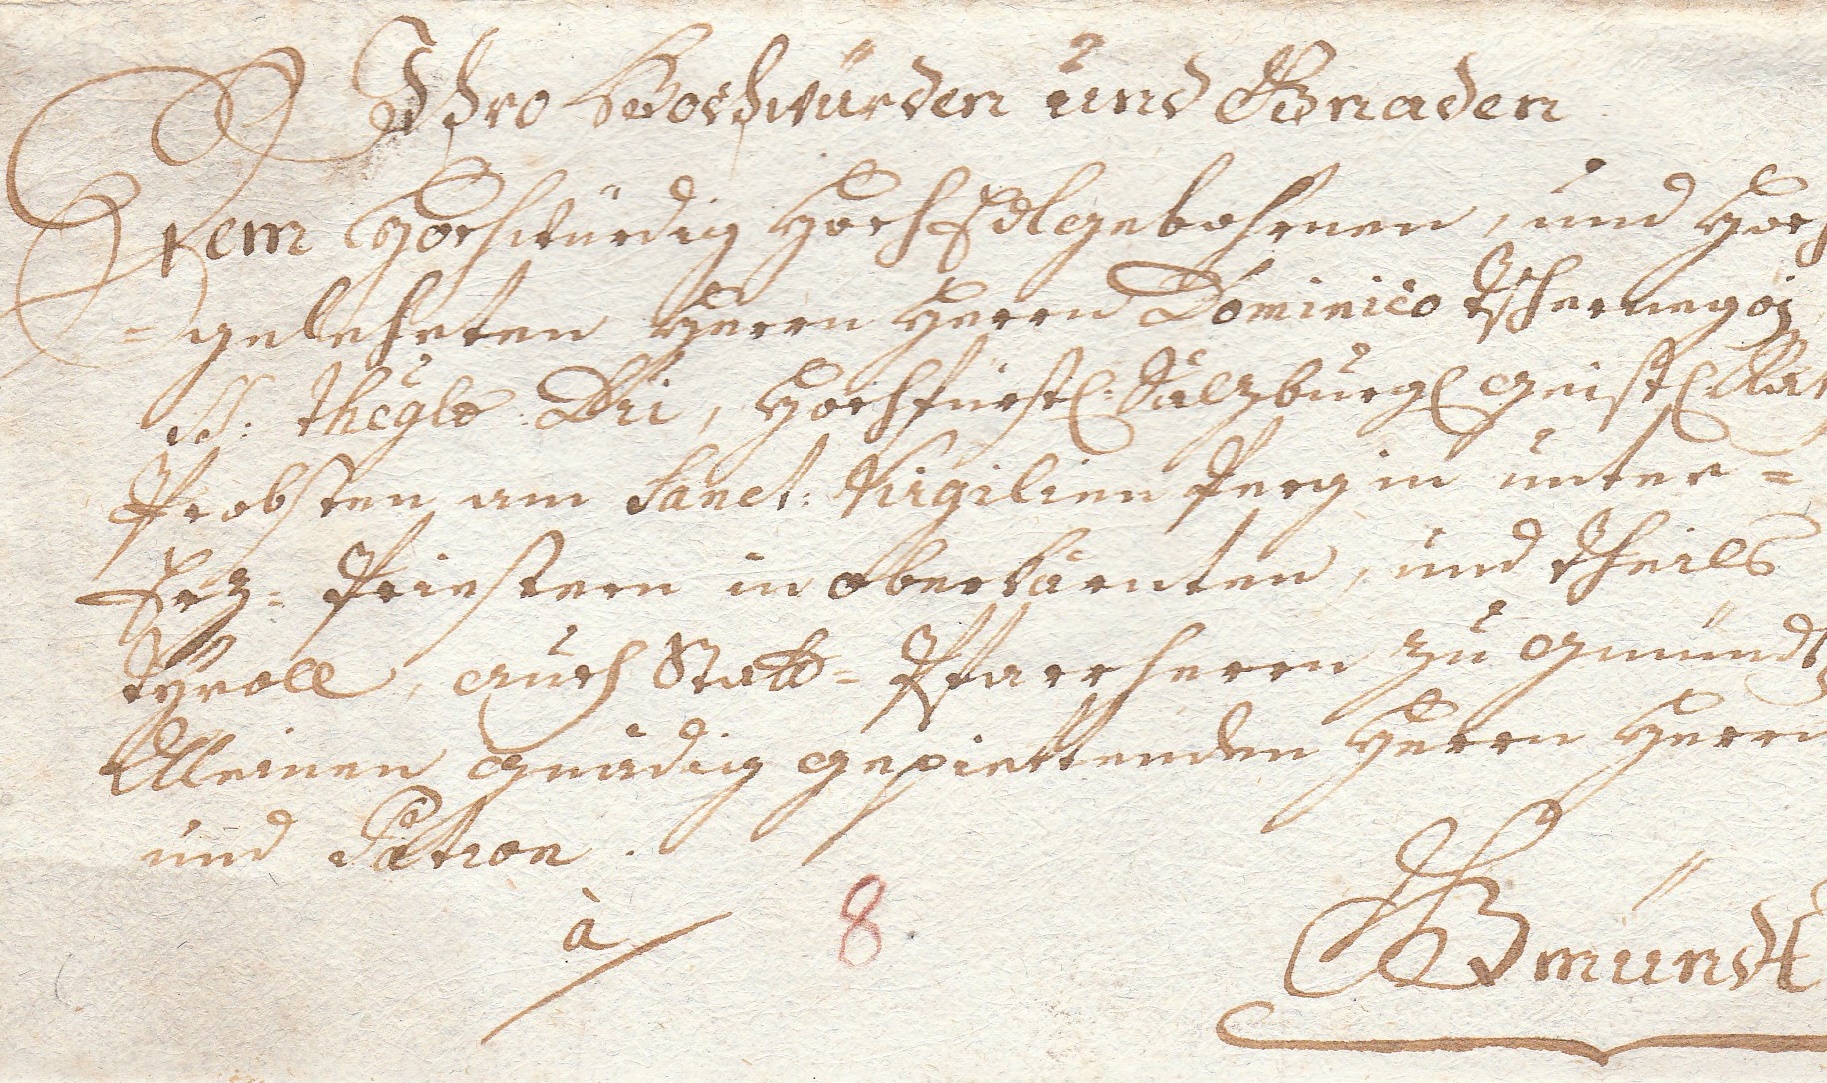 Ihro Hochwürden und Gnaden
Dem Hochwürdig HochEdlgebohrnen, und Hoch
=gelehrten Herrn Herrn Dominico Tschernegoj
SS: Theglo: Dri, Hochfürstl: Salzburgl geistl Rath
Probsten am Sanct: Virgilien Perg in unter=
Erz=Priestern in oberkärnten, und Theils
Tyroll, auch Statt=Pfarrherrn zu Gmündt
Meinen gnädig gepiettenden Herrn Herrn
und Patron.
à
8
Gmündt